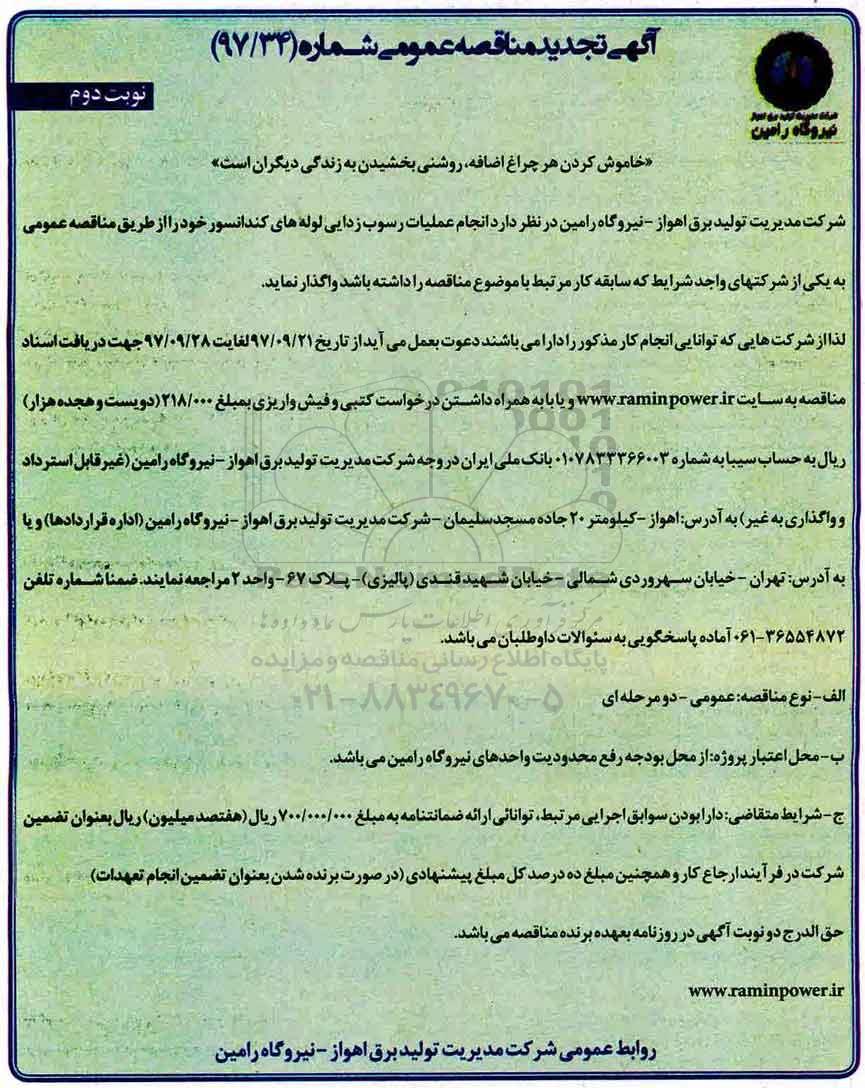 آگهی تجدید مناقصه عمومی شماره (۹۷/۳۴)
نوبت دوم
شرکت مدیریت تولید برق اهواز
نیروگاه رامین
«خاموش کردن هر چراغ اضافه، روشنی بخشیدن به زندگی دیگران است»
شرکت مدیریت تولید برق اهواز - نیروگاه رامین در نظر دارد انجام عملیات رسوب زدایی لوله های کندانسور خود را از طریق مناقصه عمومی
به یکی از شرکتهای واجد شرایط که سابقه کار مرتبط با موضوع مناقصه را داشته باشد واگذار نماید.
لذا از شرکت هایی که توانایی انجام کار مذکور را دارا می باشند دعوت بعمل می آید از تاریخ ۹۷/۰۹/۲۱ لغایت ۹۷/۰۹/۲۸ جهت دریافت اسناد
مناقصه به سایت www.raminpower.ir و یا با به همراه داشتن درخواست کتبی و فیش واریزی بمبلغ ۲۱۸/۰۰۰ (دویست و هجده هزار)
ریال به حساب سیبا به شماره ۰۱۰۷۸۳۳۳۶۶۰۰۳ بانک ملی ایران در وجه شرکت مدیریت تولید برق اهواز - نیروگاه رامین (غیر قابل استرداد
و واگذاری به غیر) به آدرس: اهواز - کیلومتر ۲۰ جاده مسجدسلیمان - شرکت مدیریت تولید برق اهواز - نیروگاه رامین (اداره قراردادها) و یا
به آدرس: تهران - خیابان سهروردی شمالی - خیابان شهید قندی (پالیزی) - پلاک ۶۷ - واحد ۲ مراجعه نمایند. ضمناً شماره تلفن
۰۶۱-۳۶۵۵۴۸۷۲ آماده پاسخگویی به سئوالات داوطلبان می باشد.
پایگاه اطلاع رسانی مناقصه و مزایده
۰۲۱-۸۸۳۴۹۶۷۰-۵
الف- نوع مناقصه: عمومی - دو مرحله ای
ب- محل اعتبار پروژه: از محل بودجه رفع محدودیت واحدهای نیروگاه رامین می باشد.
ج- شرایط متقاضی: دارا بودن سوابق اجرایی مرتبط، توانائی ارائه ضمانتنامه به مبلغ ۷۰۰/۰۰۰/۰۰۰ ریال (هفتصد میلیون) ریال بعنوان تضمین
شرکت در فرآیند ارجاع کار و همچنین مبلغ ده درصد کل مبلغ پیشنهادی (در صورت برنده شدن بعنوان تضمین انجام تعهدات)
حق الدرج دو نوبت آگهی در روزنامه بعهده برنده مناقصه می باشد.
www.raminpower.ir
روابط عمومی شرکت مدیریت تولید برق اهواز - نیروگاه رامین